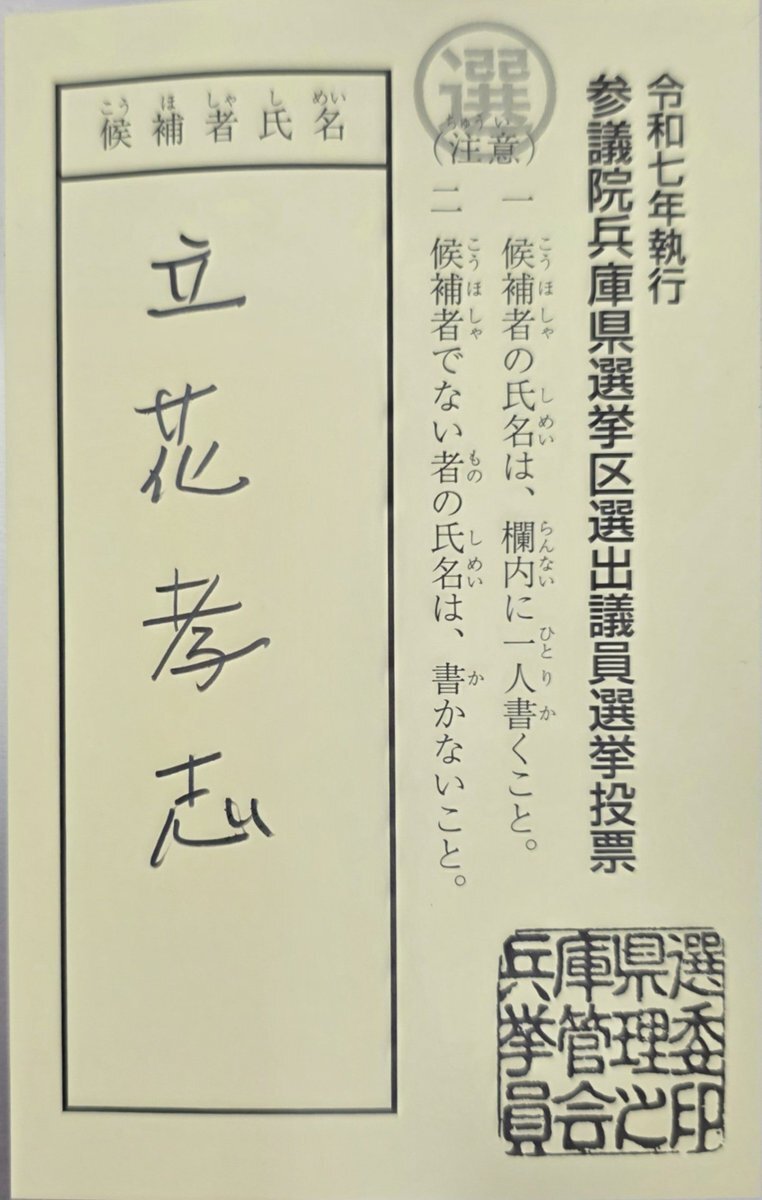 令和七年執行
参議院兵庫県選挙区選出議員選挙投票
選
(注意)
一 候補者の氏名は、欄内に一人書くこと。
二 候補者でない者の氏名は、書かないこと。
候補者氏名
立花孝志
兵庫県選
挙管理委
員会之印